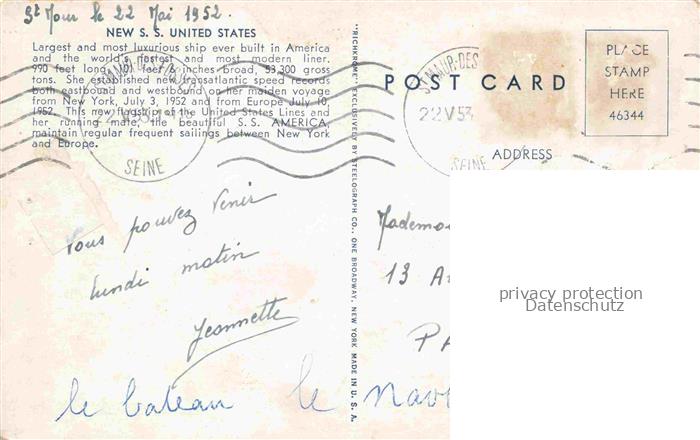 St Maur le 22 Mai 1952.
NEW S. S. UNITED STATES
Largest and most luxurious ship ever built in America
and the world's fastest and most modern liner.
990 feet long, 101 feet 7 inches broad, 53,300 gross
tons. She established new transatlantic speed records
both eastbound and westbound on her maiden voyage
from New York, July 3, 1952 and from Europe July 10,
1952. This new flagship of the United States Lines and
her running mate, the beautiful S.S. AMERICA,
maintain regular frequent sailings between New York
and Europe.
SEINE
vous pouvez venir
lundi matin
Jeannette
le bateau le Nav
"RICHKROME" EXCLUSIVELY BY STEELOGRAPH CO., ONE BROADWAY, NEW YORK MADE IN U. S. A.
POST CARD
ST MAUR-DES
22 V 53
SEINE
PLACE
STAMP
HERE
46344
ADDRESS
Mademo
13 A
PA
privacy protection
Datenschutz